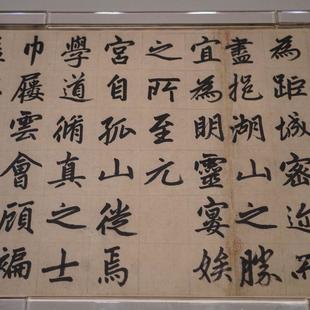 為距城密近
盡挹湖山之勝
宜為明靈宴娭
之所至元
宮自孤山徙焉
學道脩真之士
巾屨雲會顧褊